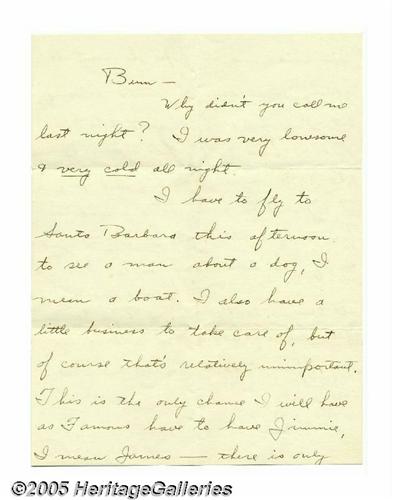 Bimn —
Why didn't you call me
last night? I was very lonesome
& very cold all night.
I have to fly to
Santa Barbara this afternoon
to see a man about a dog, I
mean a boat. I also have a
little business to take care of, but
of course that's relatively unimportant.
This is the only chance I will have
as Famous have to have Jimmie,
I mean James — there is only
©2005 HeritageGalleries